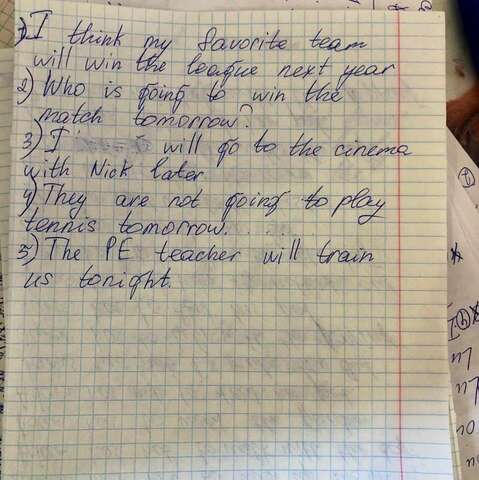 1) I think my favorite team
will win the league next year
2) Who is going to win the
match tomorrow?
3) I will go to the cinema
with Nick later
4) They are not going to play
tennis tomorrow. . . .
5) The PE teacher will train
us tonight.